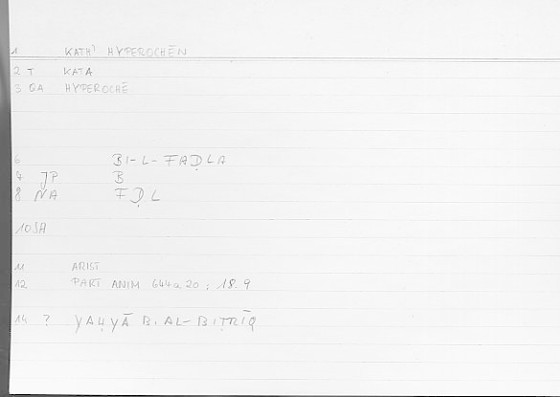 1 KATH' HYPEROCHĒN
2 T KATA
3 QA HYPEROCHĒ
6 BI-L-FAḌLA
7 JP B
8 NA FḌL
10 JA
11 ARIST
12 PART ANIM 644a20 ; 18.9
14 ? YAḤYĀ B. AL-BIṬRĪQ